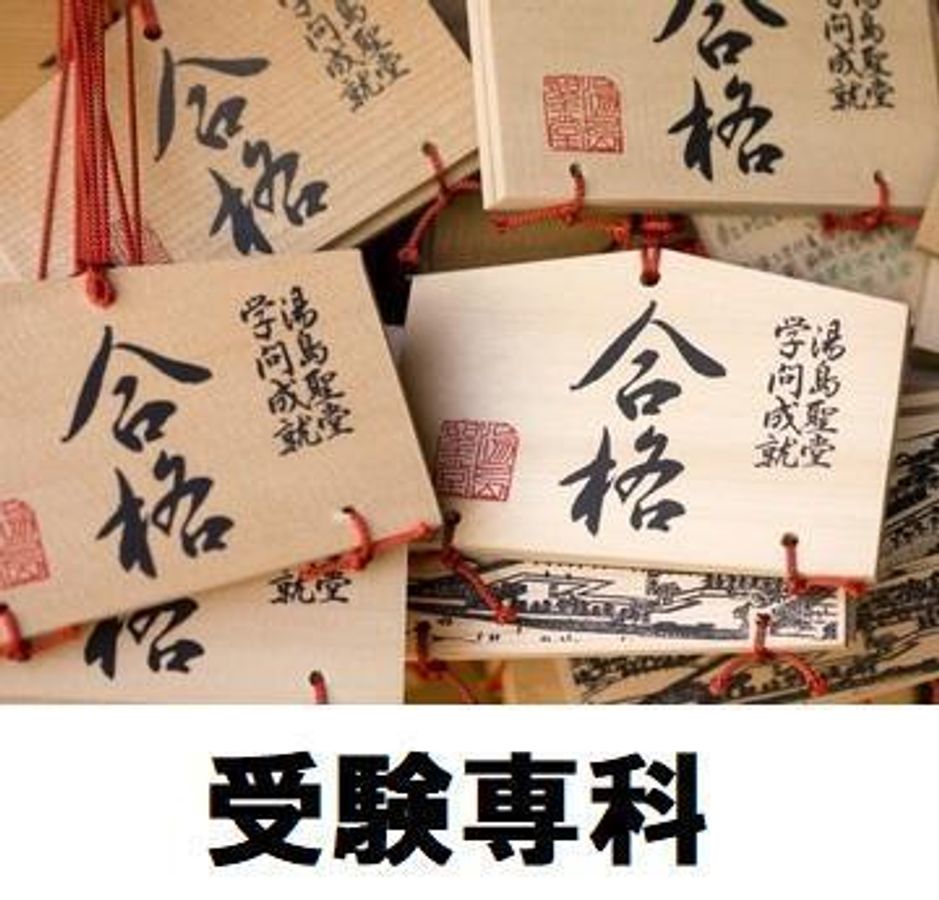 合格
湯島聖堂
学問成就
合格
湯島聖堂
学問成就
合格
湯島聖堂
学問成就
合格
湯島聖堂
学問成就
格
堂
就
受験専科